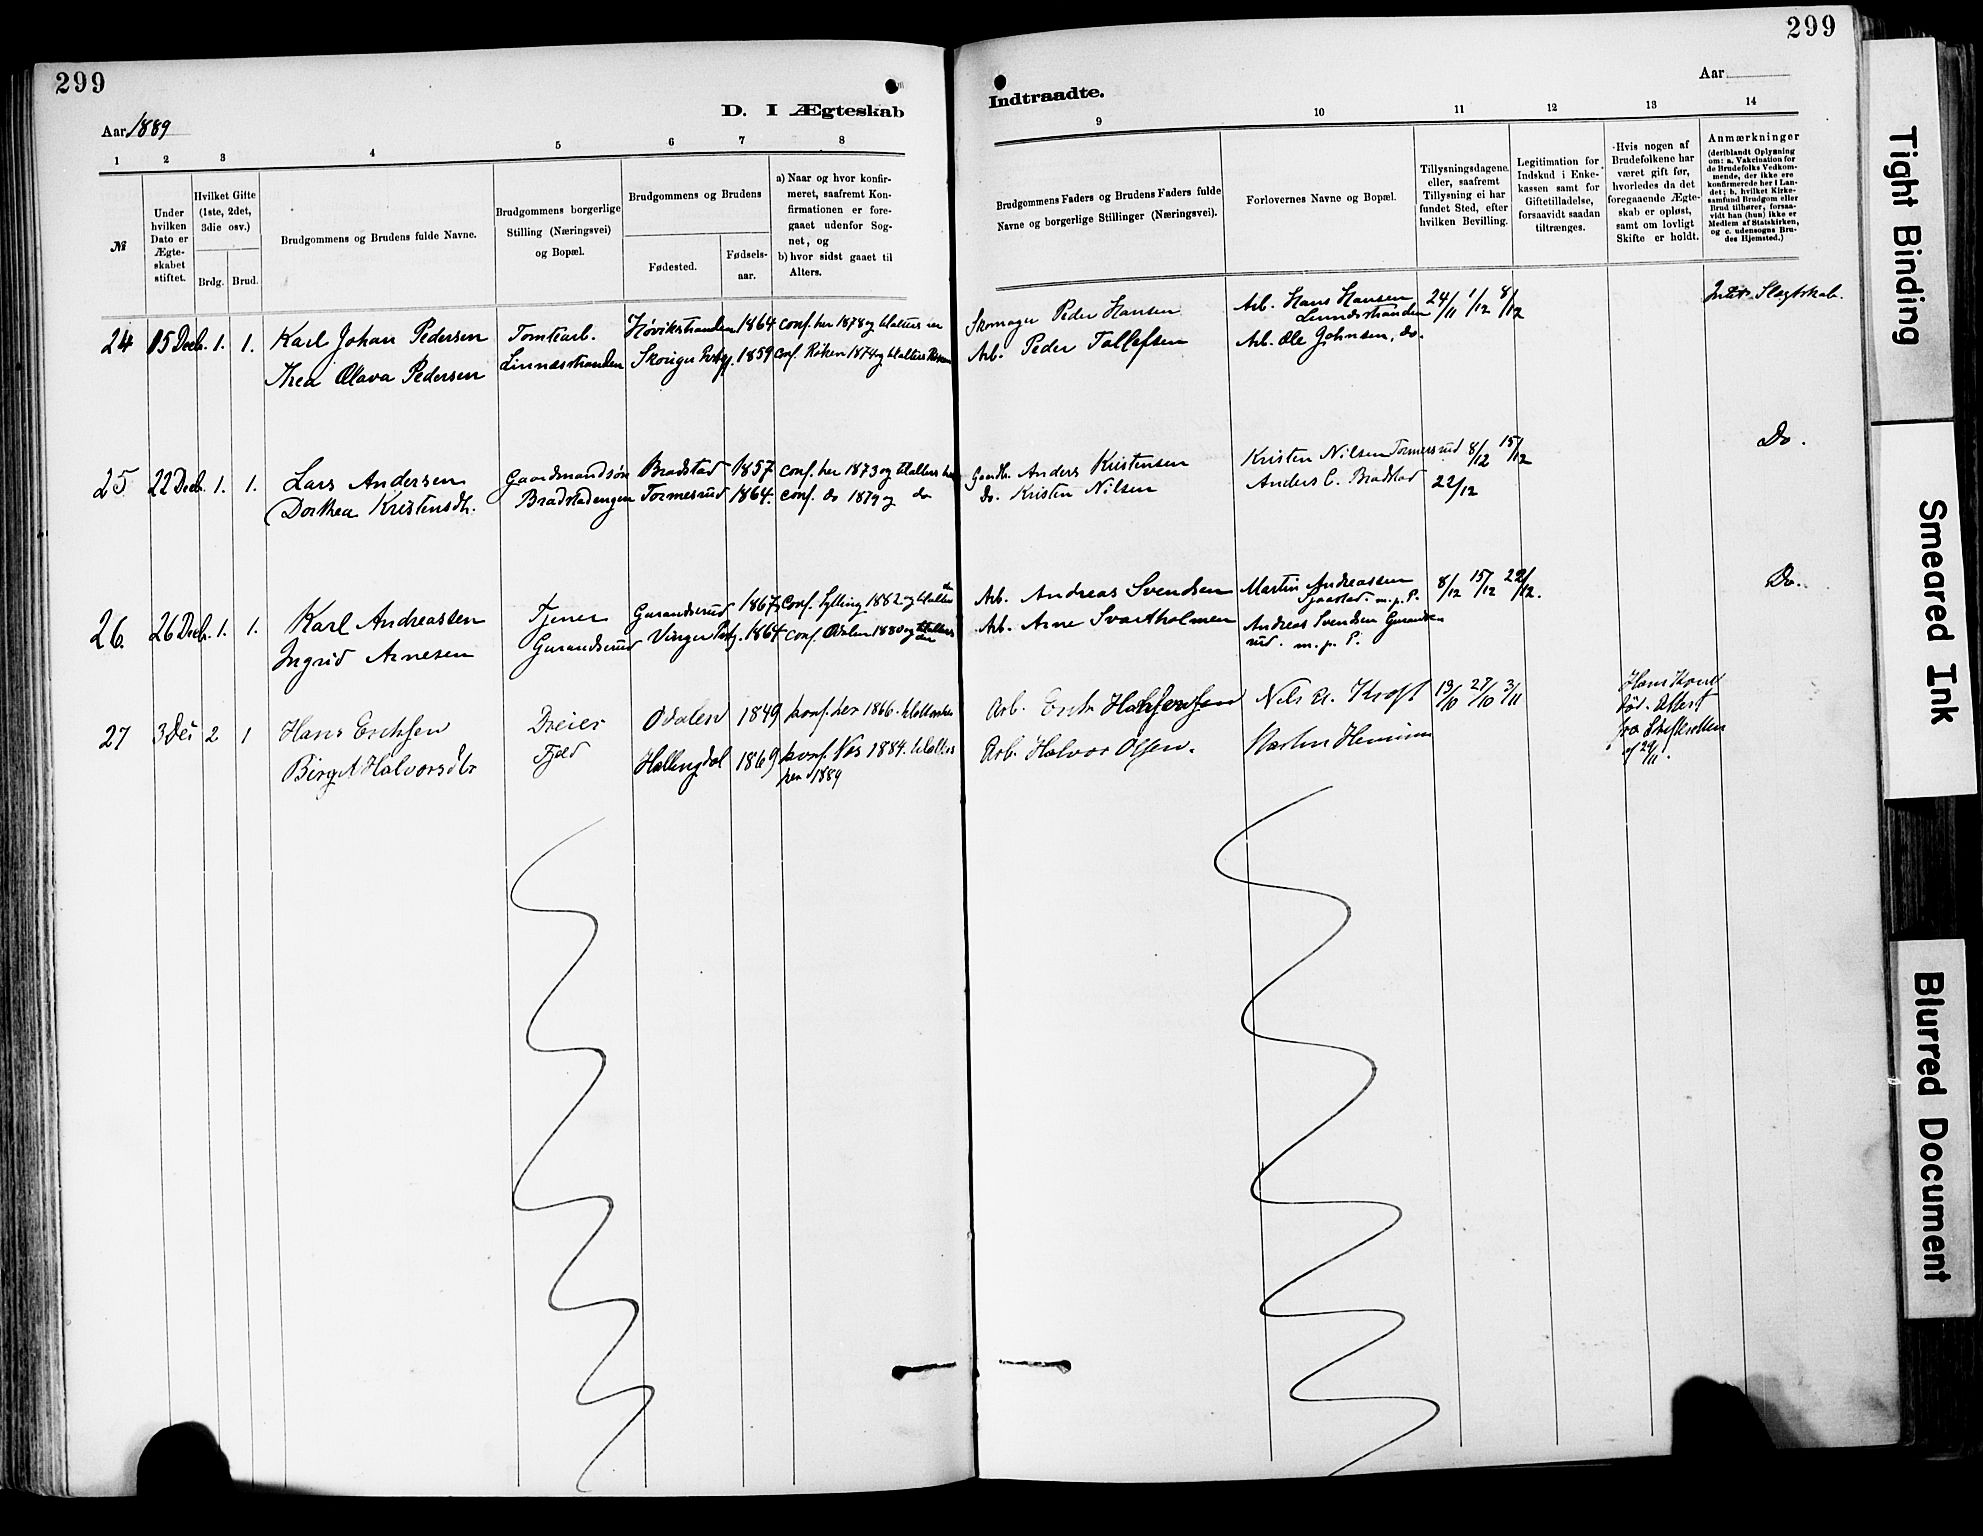 299
Aar 1889
D. I Ægteskab
1 2 3 4 5 6 7 8
№
Under hvilken Dato er Ægteskabet stiftet.
Hvilket Gifte (1ste, 2det, 3die osv.)
Brdg. Brud.
Brudgommens og Brudens fulde Navne.
Brudgommens borgerlige Stilling (Næringsvei) og Bopæl.
Brudgommens og Brudens
Fødested.
Fødsels-aar.
a) Naar og hvor konfir-
meret, saafremt Kon-
firmationen er fore-
gaaet udenfor Sog-
net, og
b) hvor sidst gaaet til
Alters.
24 15 Decb. 1. 1. Karl Johan Pedersen Tomtearb. Høvikstranden 1864 conf. her 1878 og
Thea Olava Pedersen Linnesstranden Skouger 1859 conf. Röken 1874 og
25 22 Decb. 1. 1. Lars Andersen Gaardmandsøn Bradstad 1857 conf. her 1873 og
Dorthea Kristensdtr. Bradstadengen Tormesrud 1864. conf. do 1879 og do
26. 26 Decb. 1. 1. Karl Andreassen Tjener Gurandsrud 1867 conf. Sylling 1882 og
Ingrid Arnesen Gurandsrud Vinger 1864 conf. Odalen 1880 og
27 3 Dec 2 1 Hans Erichsen Dreier Odalen 1849 konf. her 1866.
Birgit Halvorsdtr Fjeld Hallingdal 1869 konf. Nes 1884.
her 1889
299
Aar
Indtraadte.
9 10 11 12 13 14
Brudgommens Faders og Brudens Faders fulde
Navne og borgerlige Stillinger (Næringsvei).
Forlovernes Navne og Bopæl.
Tillysningsdagene
eller, saafremt
Tillysning ei har
fundet Sted, efter
hvilken Bevilling.
Legitimation for
Indskud i Enke-
kassen samt for
Giftetilladelse,
forsaavidt saadan
tiltrænges.
Hvis nogen af
Brudefolkene har
været gift før,
hvorledes da det
foregaaende Ægte-
skab er opløst,
samt om lovligt
Skifte er holdt.
Anmærkninger
(deriblandt Oplysning
om: a. Vakcination for
de Brudefolks Vedkom-
mende, der ikke ere
konfirmerede her i Lan-
det; b. hvilket Kirke-
samfund Brudgom eller
Brud tilhører, forsaa-
vidt han (hun) ikke er
Medlem af Statskirken,
og c. udensogns Bru-
des Hjemsted.)
Skomager Peder Hansen Arb. Hans Hansen 24/11 1/12 8/12 Intet Slægtskab.
Linnesstranden
Arb. Peder Tollefsen Arb. Ole Johnsen, do.
Gaardbr. Anders Kristensen Kristen Nilsen Tormesrud 8/12 15/12 Do.
Do. Kristen Nilsen Anders C. Bradstad 22/12
Arb. Andreas Svendsen Martin Andreassen 8/12 15/12 22/12. Do.
m. p. P.
Arb. Arne Svartholmen Andreas Svendsen Gurands-
rud. m. p. P.
Arb. Nils A. Kroft 13/10 27/10 3/11
Arb. Halvor Olsen.
død. Attest
fra Skifteretten
af 29/11.
Tight Binding
Smeared Ink
Blurred Document